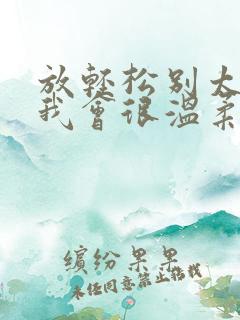 放轻松别太
我会很温柔
缤纷果果
未经同意禁止搭载